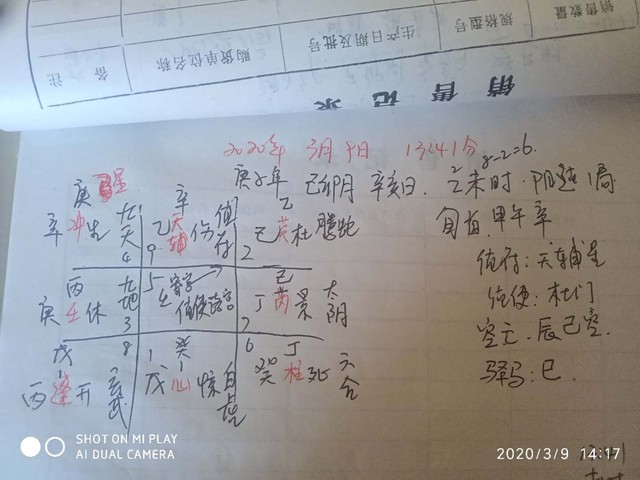 备注
购货单位名称
生产日期及批号
规格型号
销售数量
销售记录
2020年 3月9日 13:41分
8-2=6.
庚子年 己卯月 辛亥日. 乙未时. 阳遁1局
旬首. 甲午辛
值符: 天辅星
值使: 杜门
空亡. 辰巳空
驿马: 巳.
庚
辛 冲 生 九天
4
辛
乙 天辅 伤 值符
9
乙
己 英 杜 螣蛇
2
丙
庚 任 休 九地
3
5
寄宫
值使
己
丁 芮 景 太阴
7
戊
丙 蓬 开 玄武
8
1 癸
戊 心 惊 白虎
6 丁
癸 柱 死 六合
SHOT ON MI PLAY
AI DUAL CAMERA
2020/3/9 14:17